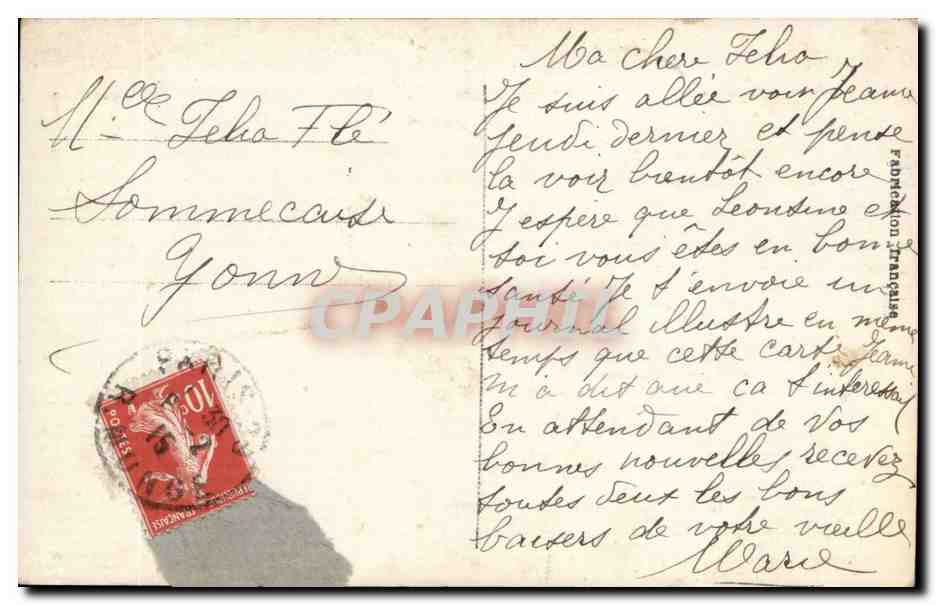 Ma chere Zelia
Je suis allée voir Jeanne
jeudi dernier et pense
la voir bientôt encore
J espere que Leontine et
toi vous êtes en bonne
santé Je t'envoie un
journal illustre en même
temps que cette carte Jeanne
m a dit que ca t interessait
En attendant de vos
bonnes nouvelles recevez
toutes deux les bons
baisers de votre vieille
Marie
Mlle Zelia Flé
Sommecaise
Yonne
Fabrication française
CPAPHIL
PARIS
10c
POSTES
REPUBLIQUE FRANÇAISE